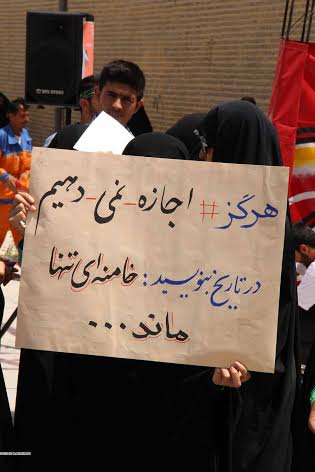 هرگز # اجازه-نمی-دهیم
در تاریخ بنویسید: خامنه‌ای تنها
ماند...